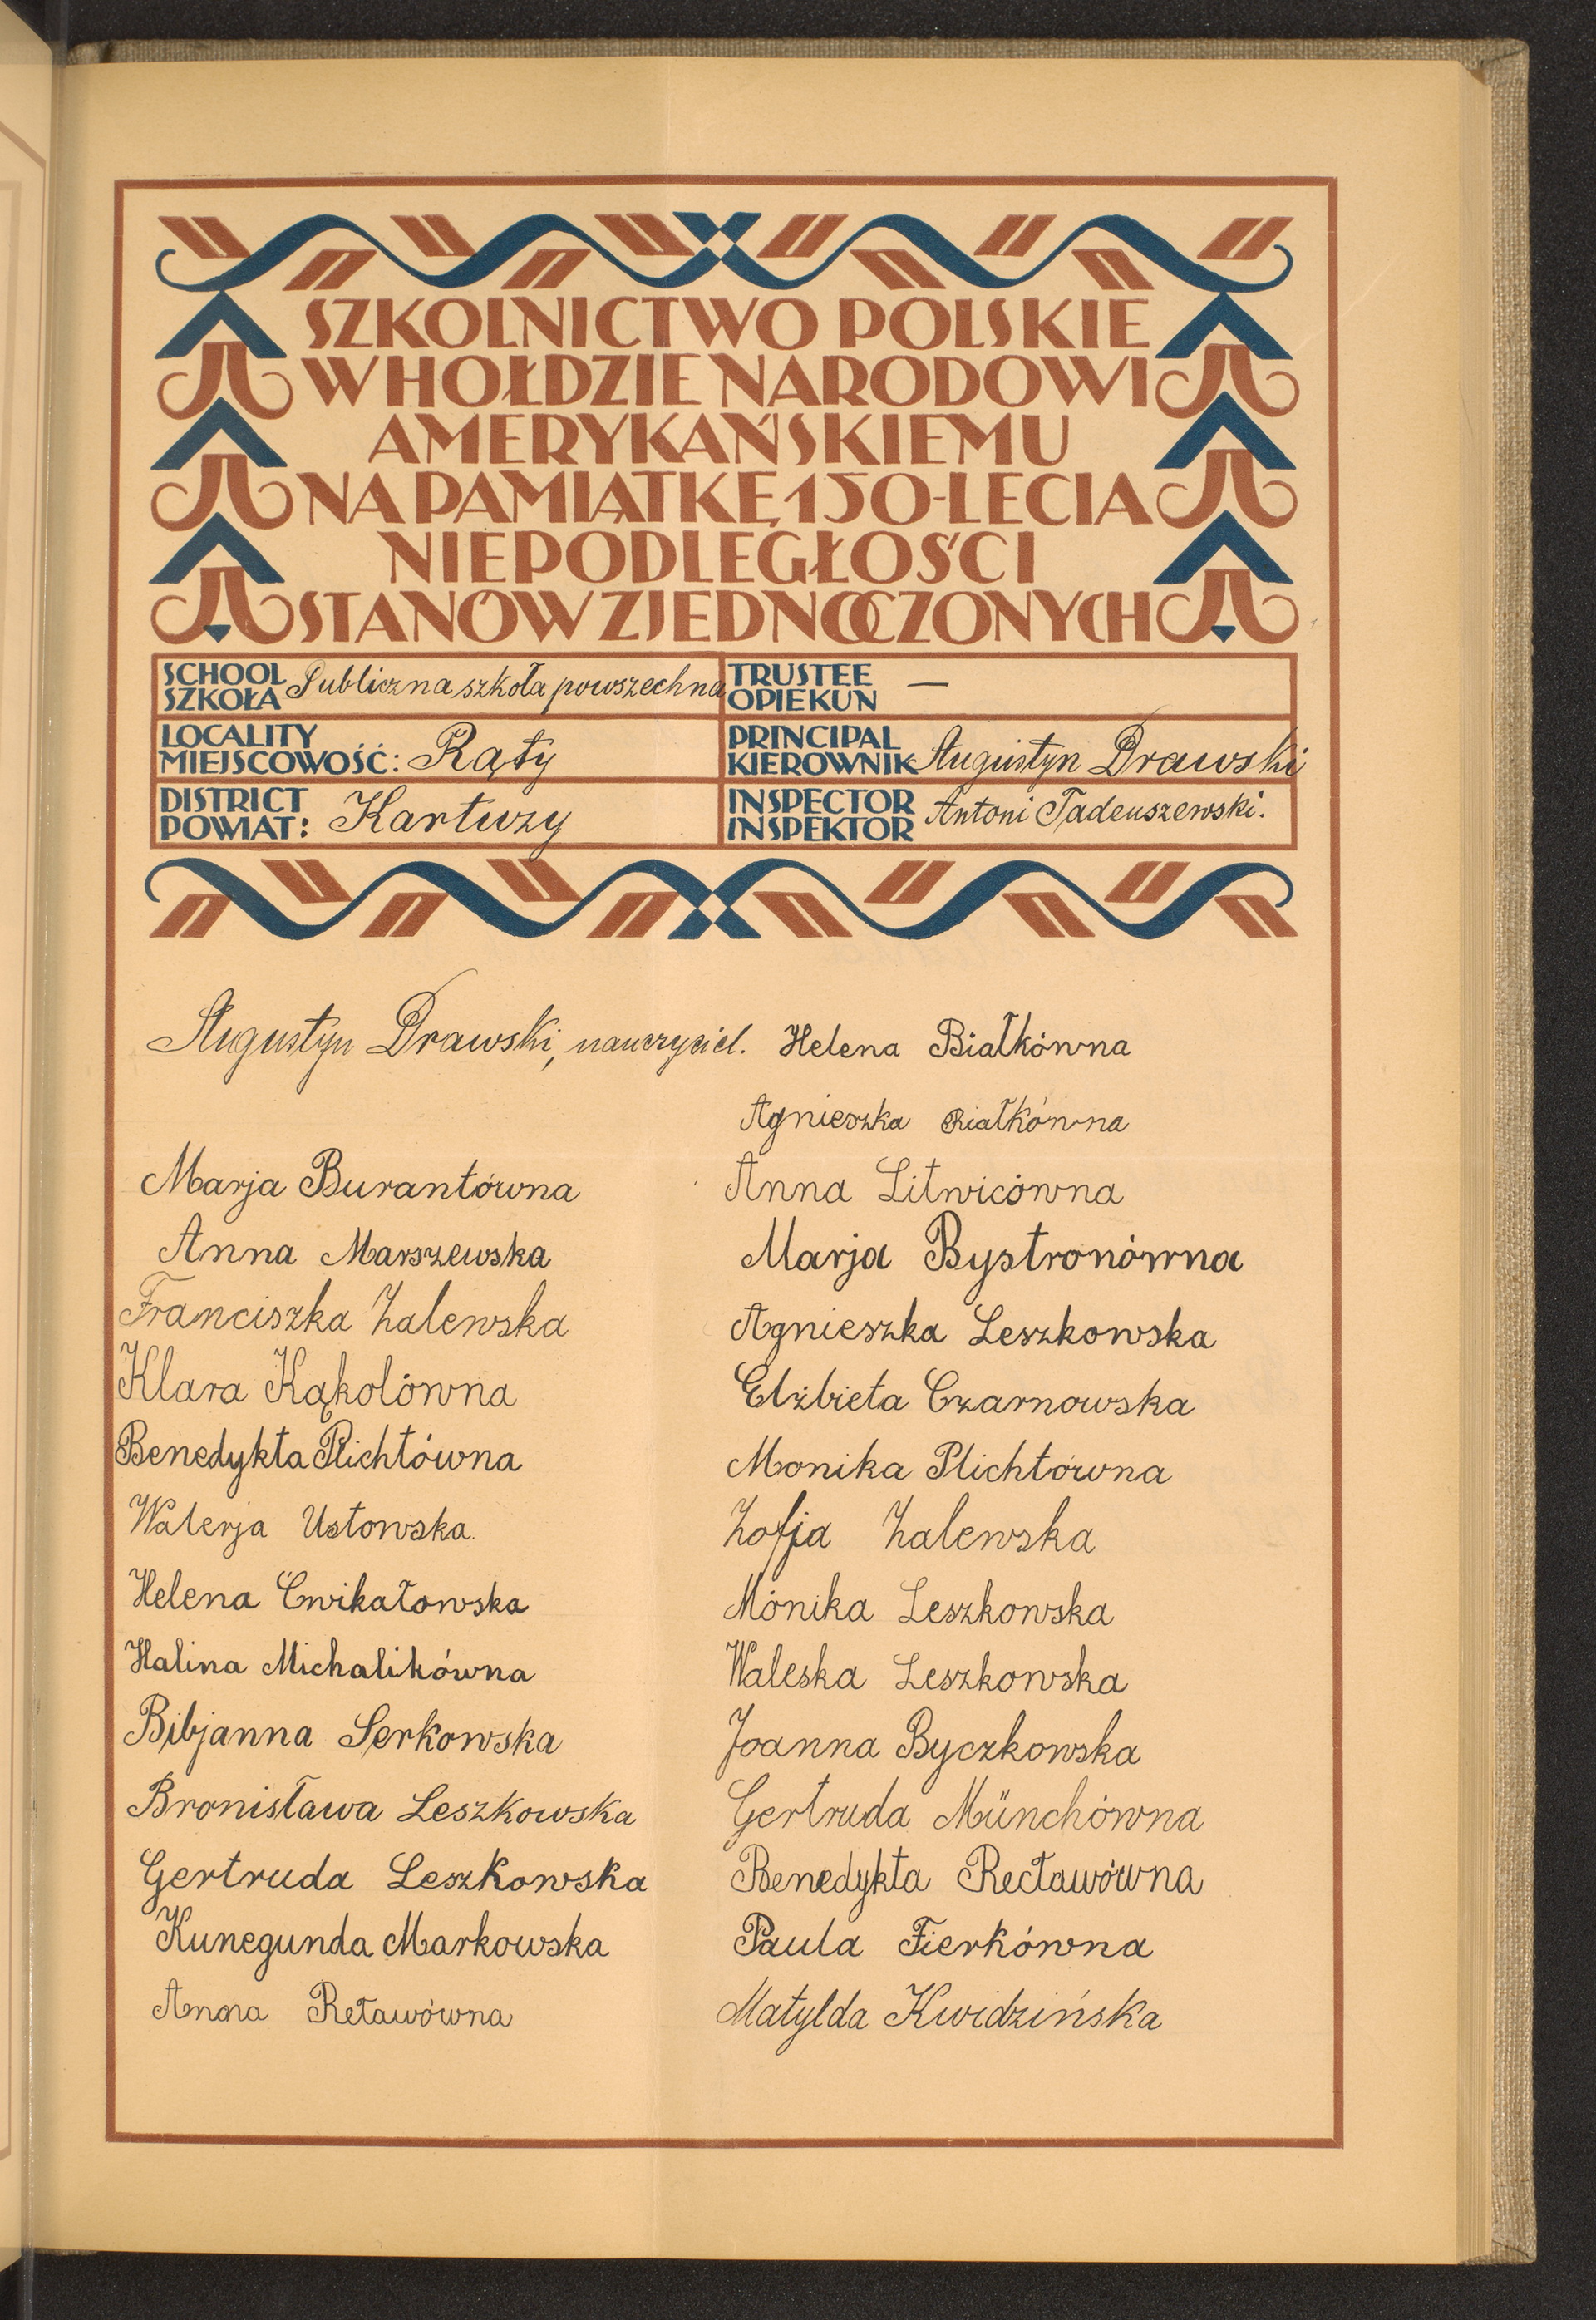 SZKOLNICTWO POLSKIE
W HOŁDZIE NARODOWI
AMERYKAŃSKIEMU
NA PAMIĄTKĘ 150-LECIA
NIEPODLEGŁOŚCI
STANÓW ZJEDNOCZONYCH
SCHOOL
SZKOŁA Publiczna szkoła powszechna
TRUSTEE
OPIEKUN —
LOCALITY
MIEJSCOWOŚĆ: Rąty
PRINCIPAL
KIEROWNIK Augustyn Drawski
DISTRICT
POWIAT: Kartuzy
INSPECTOR
INSPEKTOR Antoni Tadeuszewski.
Augustyn Drawski, nauczyciel.
Marja Burantówna
Anna Marszewska
Franciszka Zalewska
Klara Kąkolówna
Benedykta Plichtówna
Walerja Ustowska.
Helena Ćwikałowska
Halina Michalikówna
Bibjanna Serkowska
Bronisława Leszkowska
Gertruda Leszkowska
Kunegunda Markowska
Anna Retawówna
Helena Białkówna
Agnieszka Białkówna
Anna Litwicówna
Marja Bystronówna
Agnieszka Leszkowska
Elżbieta Czarnowska
Monika Plichtówna
Zofja Zalewska
Mónika Leszkowska
Waleska Leszkowska
Joanna Byczkowska
Gertruda Münchówna
Benedykta Rectawówna
Paula Fierkówna
Matylda Kwidzińska